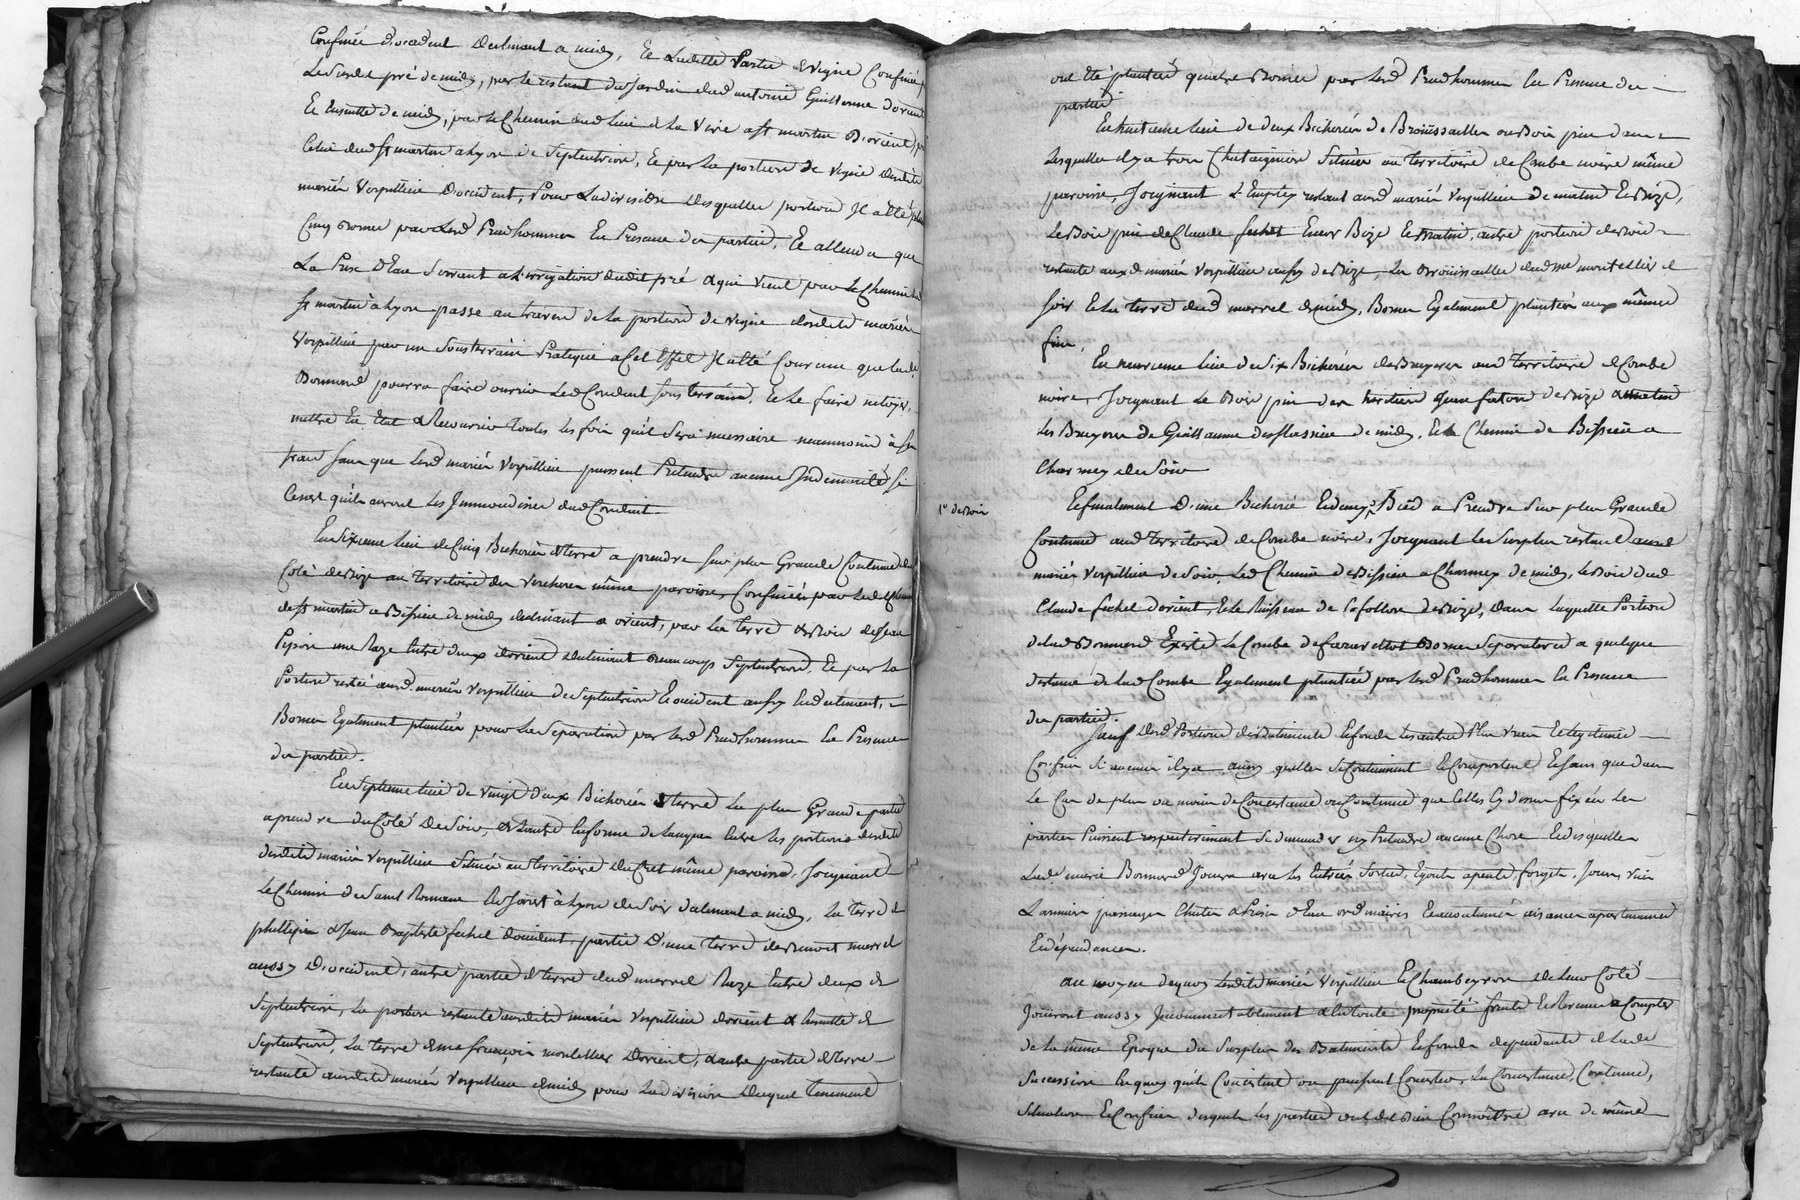 Confinée d'occident declinant a midy, Et Laditte Partie de Vigne Confinée
Le susdit pré de midy, par le restant du Jardin dud antoine Guillerme d'orient
Et Ensuitte de midy, par le Chemin dud lieu de la Vire a St martin D'orient, par
Celui dud St martin a Lyon de Septentrion, Et par la portion de Vigne desdits
mariés Verpillieu D'occident, Pour La division desquelles portions Il a été planté
Cinq Bornes par Lesd Prudhommes En Presence des parties, Et attendu que
La Prise D'Eau Servant a L'irrigation dudit pré & qui vient par le Chemin de
St martin à Lyon passe au travers de la portion de Vigne desdits mariés
Verpillieu par un Sousterrain Pratiqué a Cet Effet Il a été Convenu que lade
Bonnard pourra faire ouvrir Led Conduit Sous terrain, Et Le faire netoyer,
mettre En Etat & Recouvrir Toutes les fois qu'il Sera necessaire neanmoins à Ses
frais Sans que Lesd mariés Verpillieu puissent Pretendre aucune Indemnité Si
Ce n'est qu'ils auront Les Immondices dud Conduit
En Sixieme lieu de Cinq Bicherées de terre a prendre Sur plus Grande Contenue du
Coté de Bize au Territoire des Vercheres même paroisse, Confinées par Led Chemin
de St martin a Bissieu de midy declinant a orient, par La Terre & Bois de Jean
Pipon une Raze Entre deux d'orient declinant Beaucoup Septentrion, Et par la
Portion restée auxd mariés Verpillieu de Septentrion Et occident aussy Induement,
Bornes Egalement plantées pour La Separation par lesd Prudhommes En Presence
des parties.
En Septieme lieu de Vingt deux Bicherées de terre La plus Grande partie
a prendre du Coté De Soir, & L'autre En forme de langue Entre les portions desdits
desdits mariés Verpillieu Située au Territoire du Cret même paroisse, Joignant
Le Chemin de Saint Romain de à Lyon de Soir declinant a midy, La Terre de
phillipe & Jean Baptiste fechet d'occident, partie D'une Terre de Benoit murrel
aussy D'occident, autre partie de terre dud murrel Raze Entre deux de
Septentrion, La portion restante auxdits mariés Verpillieu d'orient & Ensuitte de
Septentrion, La terre de me françois montellier D'orient, & autre partie de Terre
restante auxdits mariés Verpillieu de midy pour La division Duquel Tenement
ont été plantées quatre Bornes par Lesd Prudhommes En Presence des
parties.
En huitieme lieu de deux Bicherées de Broussailles ou Bois pin dans
Lesquelles il y a trois Chataigniers Situées au Territoire de Combe noire même
paroisse, Joignant L'Emplus restant auxd mariés Verpillieu de matin Et Bize,
Le Bois pin de Claude fechet Encore Bize Et matin, autre portion de Bois
restante auxd mariés Verpillieu aussy de Bize, Les Broussailles dud me montellier de
Soir Et La terre dud murrel de midy, Bornes Egalement plantées aux mêmes
fins,
En neuvieme lieu de Six Bicherées de Bruyeres aud Territoire de Combe
noire, Joignant Le Bois pin des heritiers Jean faton de Bize & matin
Les Bruyeres de Guillaume desflassieu de midy, Et le Chemin de Bissieu a
Charmey de Soir
1er de Bois
Et finalement D'une Bicherée Et demy Bois a Prendre Sur plus Grande
Contenue aud Territoire de Combe noire, Joignant Le Surplus restant auxd
mariés Verpillieu de Soir, Led Chemin de Bissieu a Charmey de midy, Le Bois dud
Claude fechet d'orient, Et le Ruisseau de Lafollon de Bize, Dans Laquelle Portion
de lad Bonnard Existe La Combe de Bornes Separatoires a quelque
distance de Lad Combe Egalement plantées par lesd Prudhommes En Presence
des parties.
Sauf Desd Portions de Batiments Et fonds Les autres Plus vrais Et legitimes
Confins Si aucuns il y a, ainsy quelles Se Contiennent Et Comportent Et Sans que dans
Le Cas de plus ou moins de Consistance ou Contenue que Celles Cy dessus fixées Les
parties Puissent respectivement Se demander ny Pretendre aucune Chose Et desquelles
Lade marie Bonnard Jouira avec les Entrées, Sorties, Egouts, apents, forgets, Jours, vues
Larmiers passages Chutes & Prises d'Eau ordinaires Et accoutumés aisances apartenances
Et dépendances.
Au moyen dequoy Lesdits mariés Verpillieu Et Chambeyron de Leur Coté
Jouiront aussy Incommutablement & En toute propriété fonds Et Revenus a Compter
de La même Epoque du Surplus des Batiments Et fonds dependants de Lade
Succession En quoy qu'ils Consistent ou puissent Consister, La Consistance, Contenue,
Situation Et Confins desquels les parties ont dit Bien Connoître avec de même